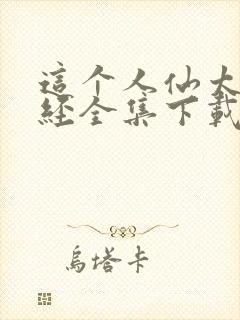 這个人仙太
經全集下載
烏塔卡